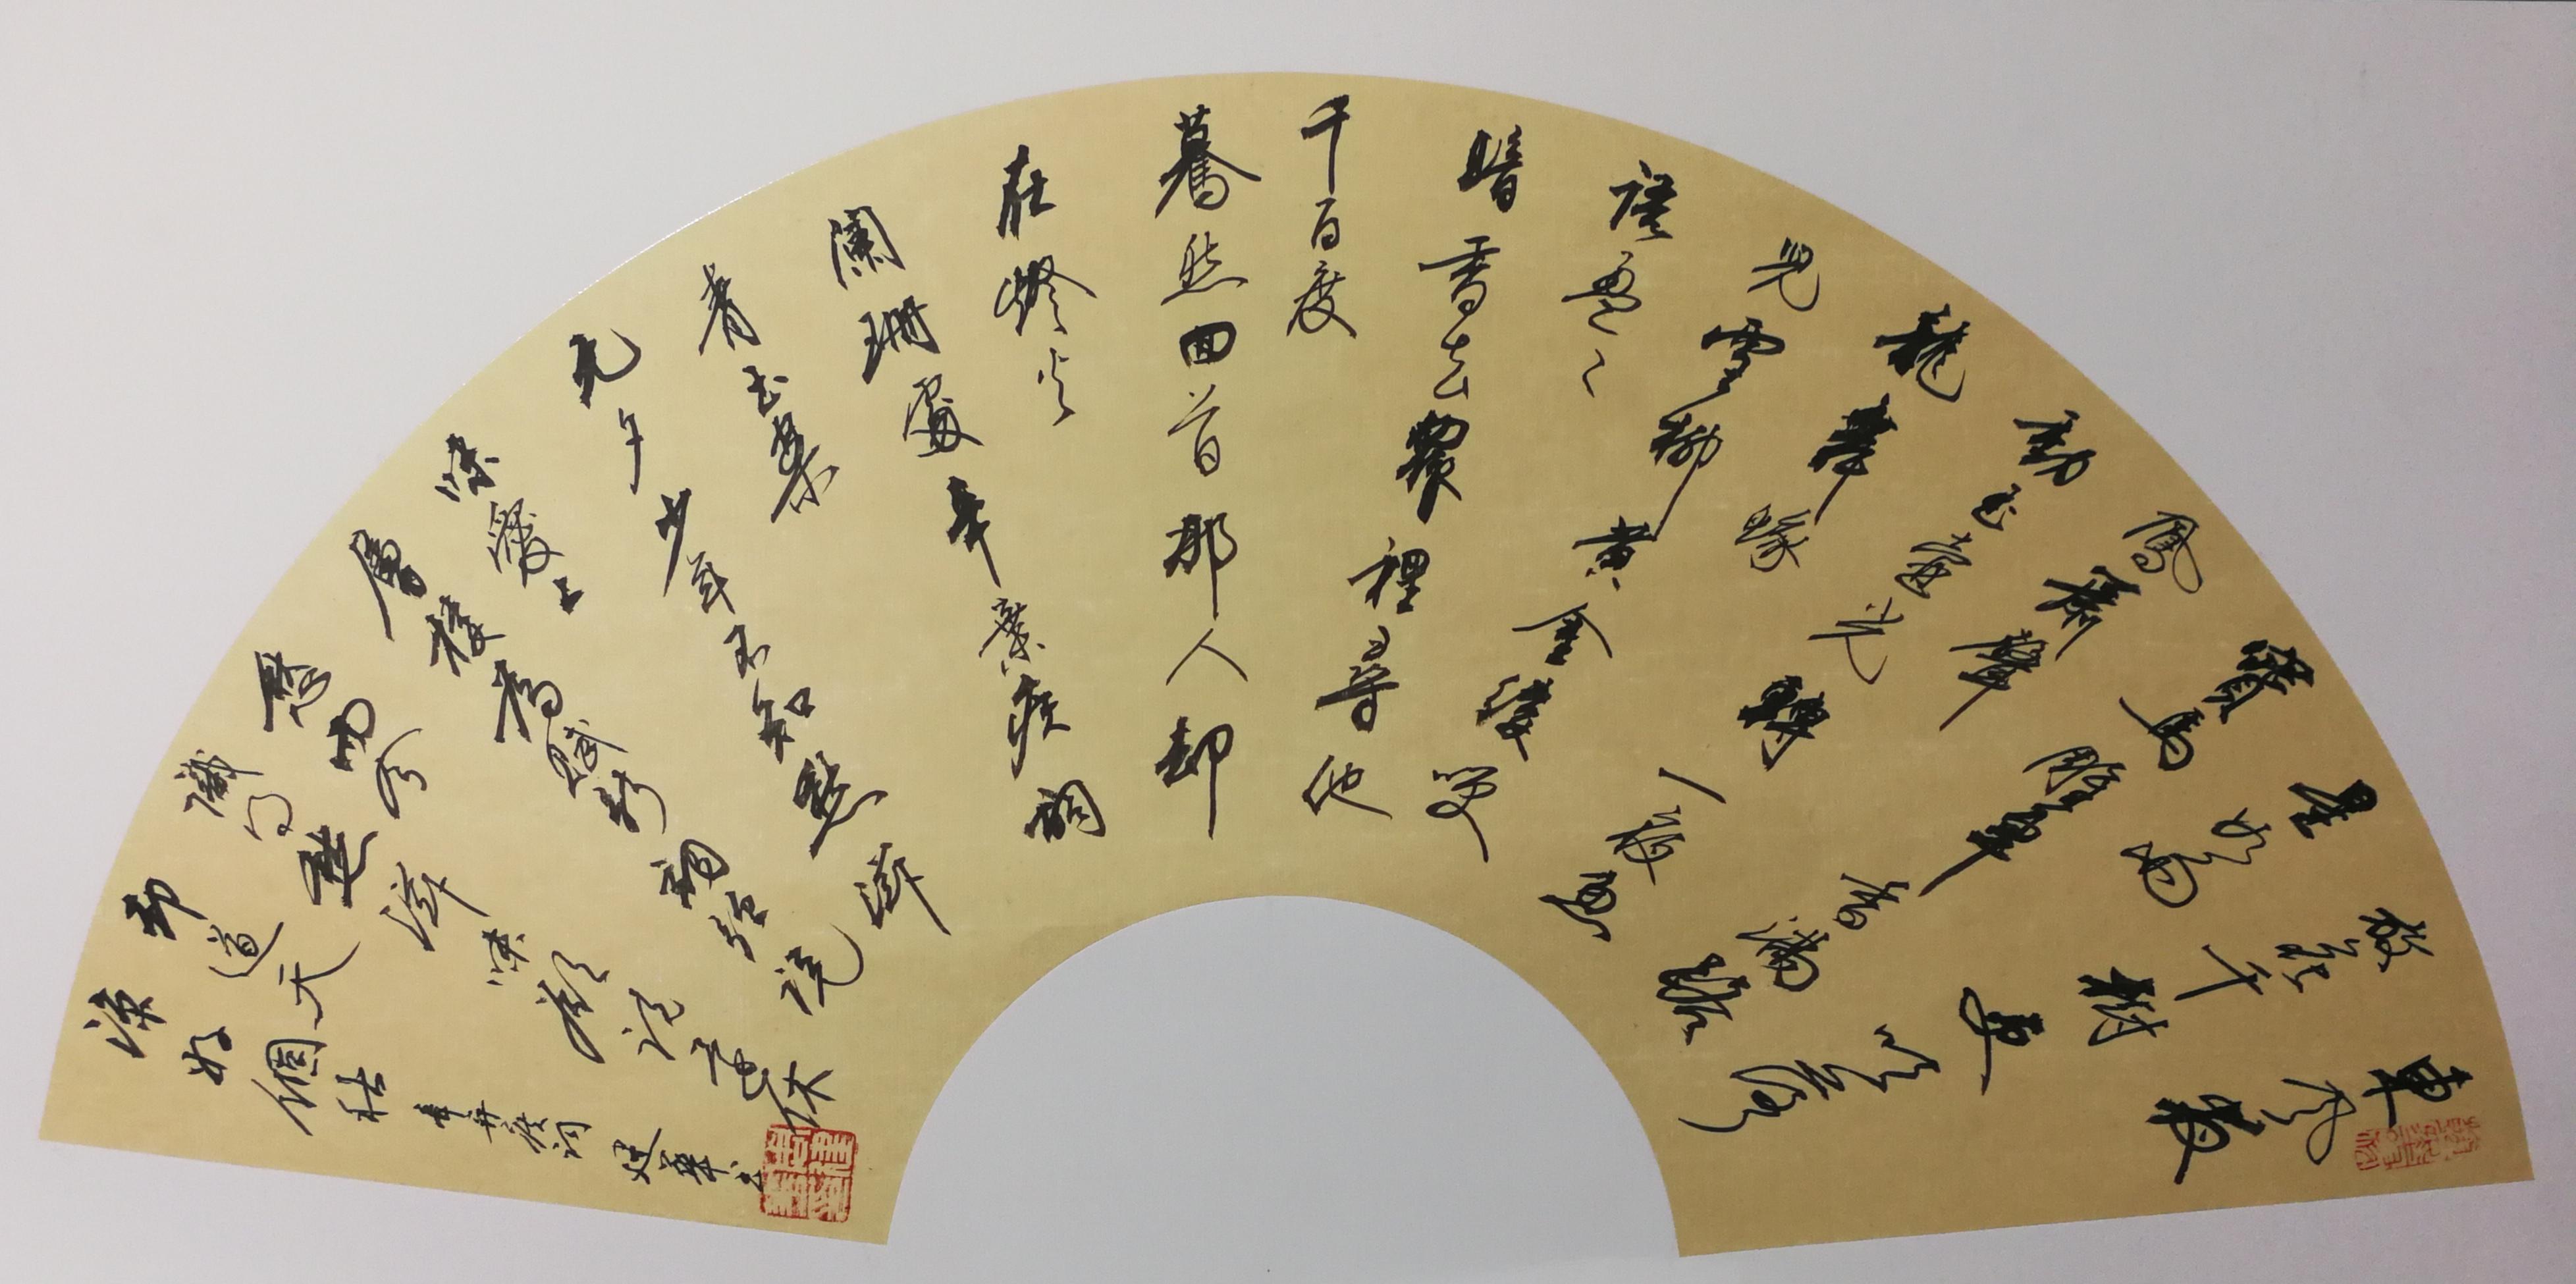 東風夜
放花千樹更吹落
星如雨
寶馬雕車香滿路
鳳簫聲
動玉壺光轉一夜魚
龍舞蛾
兒雪柳黃金縷笑
語盈〻
暗香去眾裡尋他
千百度
驀然回首那人却
在燈火
闌珊處辛棄疾詞
青玉案
元夕少年不知愁滋
味愛上
層樓為賦新詞強說
愁而今
識得愁滋味欲說還休
却道天
涼好個秋
辛棄疾詞 建華書